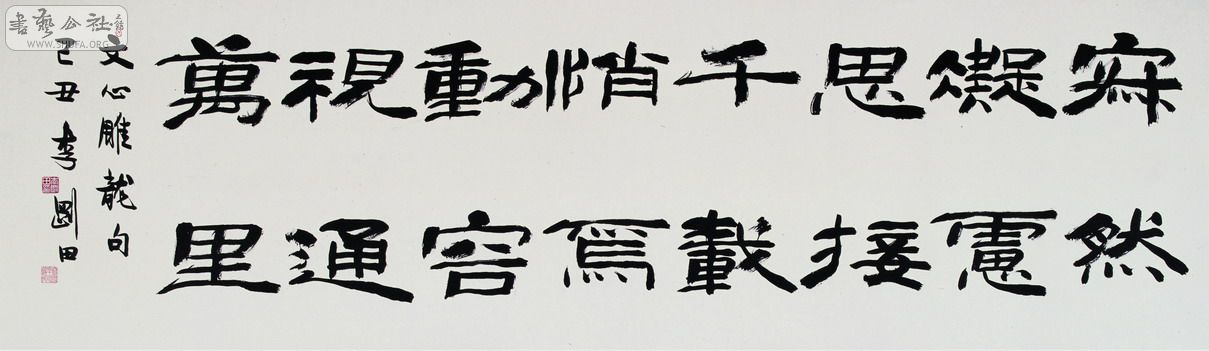 寂然
凝慮
思接
千載
悄焉
動容
視通
萬里
文心雕龍句
己丑李剛田
書藝公社
WWW.SHUFA.ORG